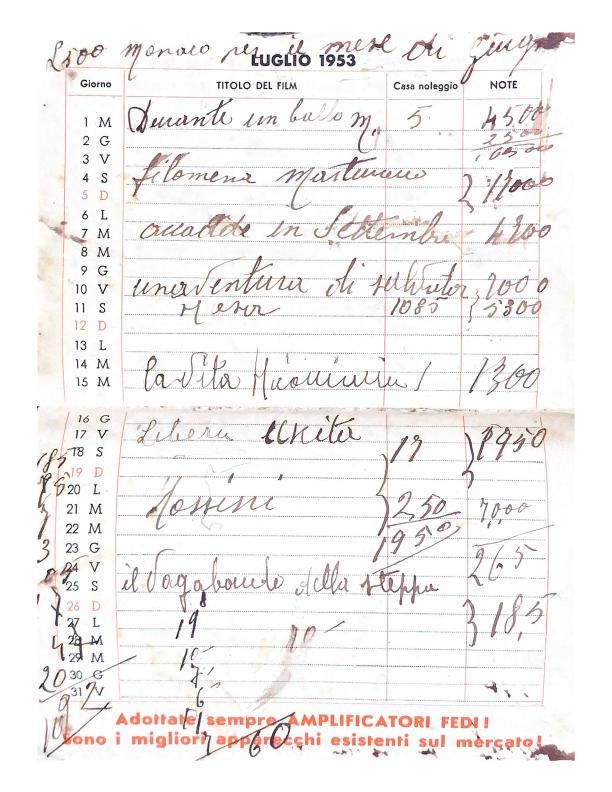 L500 monaco per il mese di Giugno
LUGLIO 1953
Giorno TITOLO DEL FILM Casa noleggio NOTE
1 M Durante un ballo m. 5 4500
2 G 10500
3 V
4 S filomena Marturano 17000
5 D
6 L
7 M accadde in Settembre 4200
8 M
9 G
10 V una aventura di salvator 7000
11 S Rosa 1085 5300
12 D
13 L
14 M
15 M la vita 1300
16 G
17 V Libera uscita 17 8950
18 S
19 D
20 L
21 M Rossini 2,50 7000
22 M 1950
23 G 265
24 V
25 S il Vagabondo della steppa
26 D 18,5
27 L 19
28 M 10
29 M
30 G 20
31 V
60
Adottate sempre AMPLIFICATORI FEDI!
Sono i migliori apparecchi esistenti sul mercato!